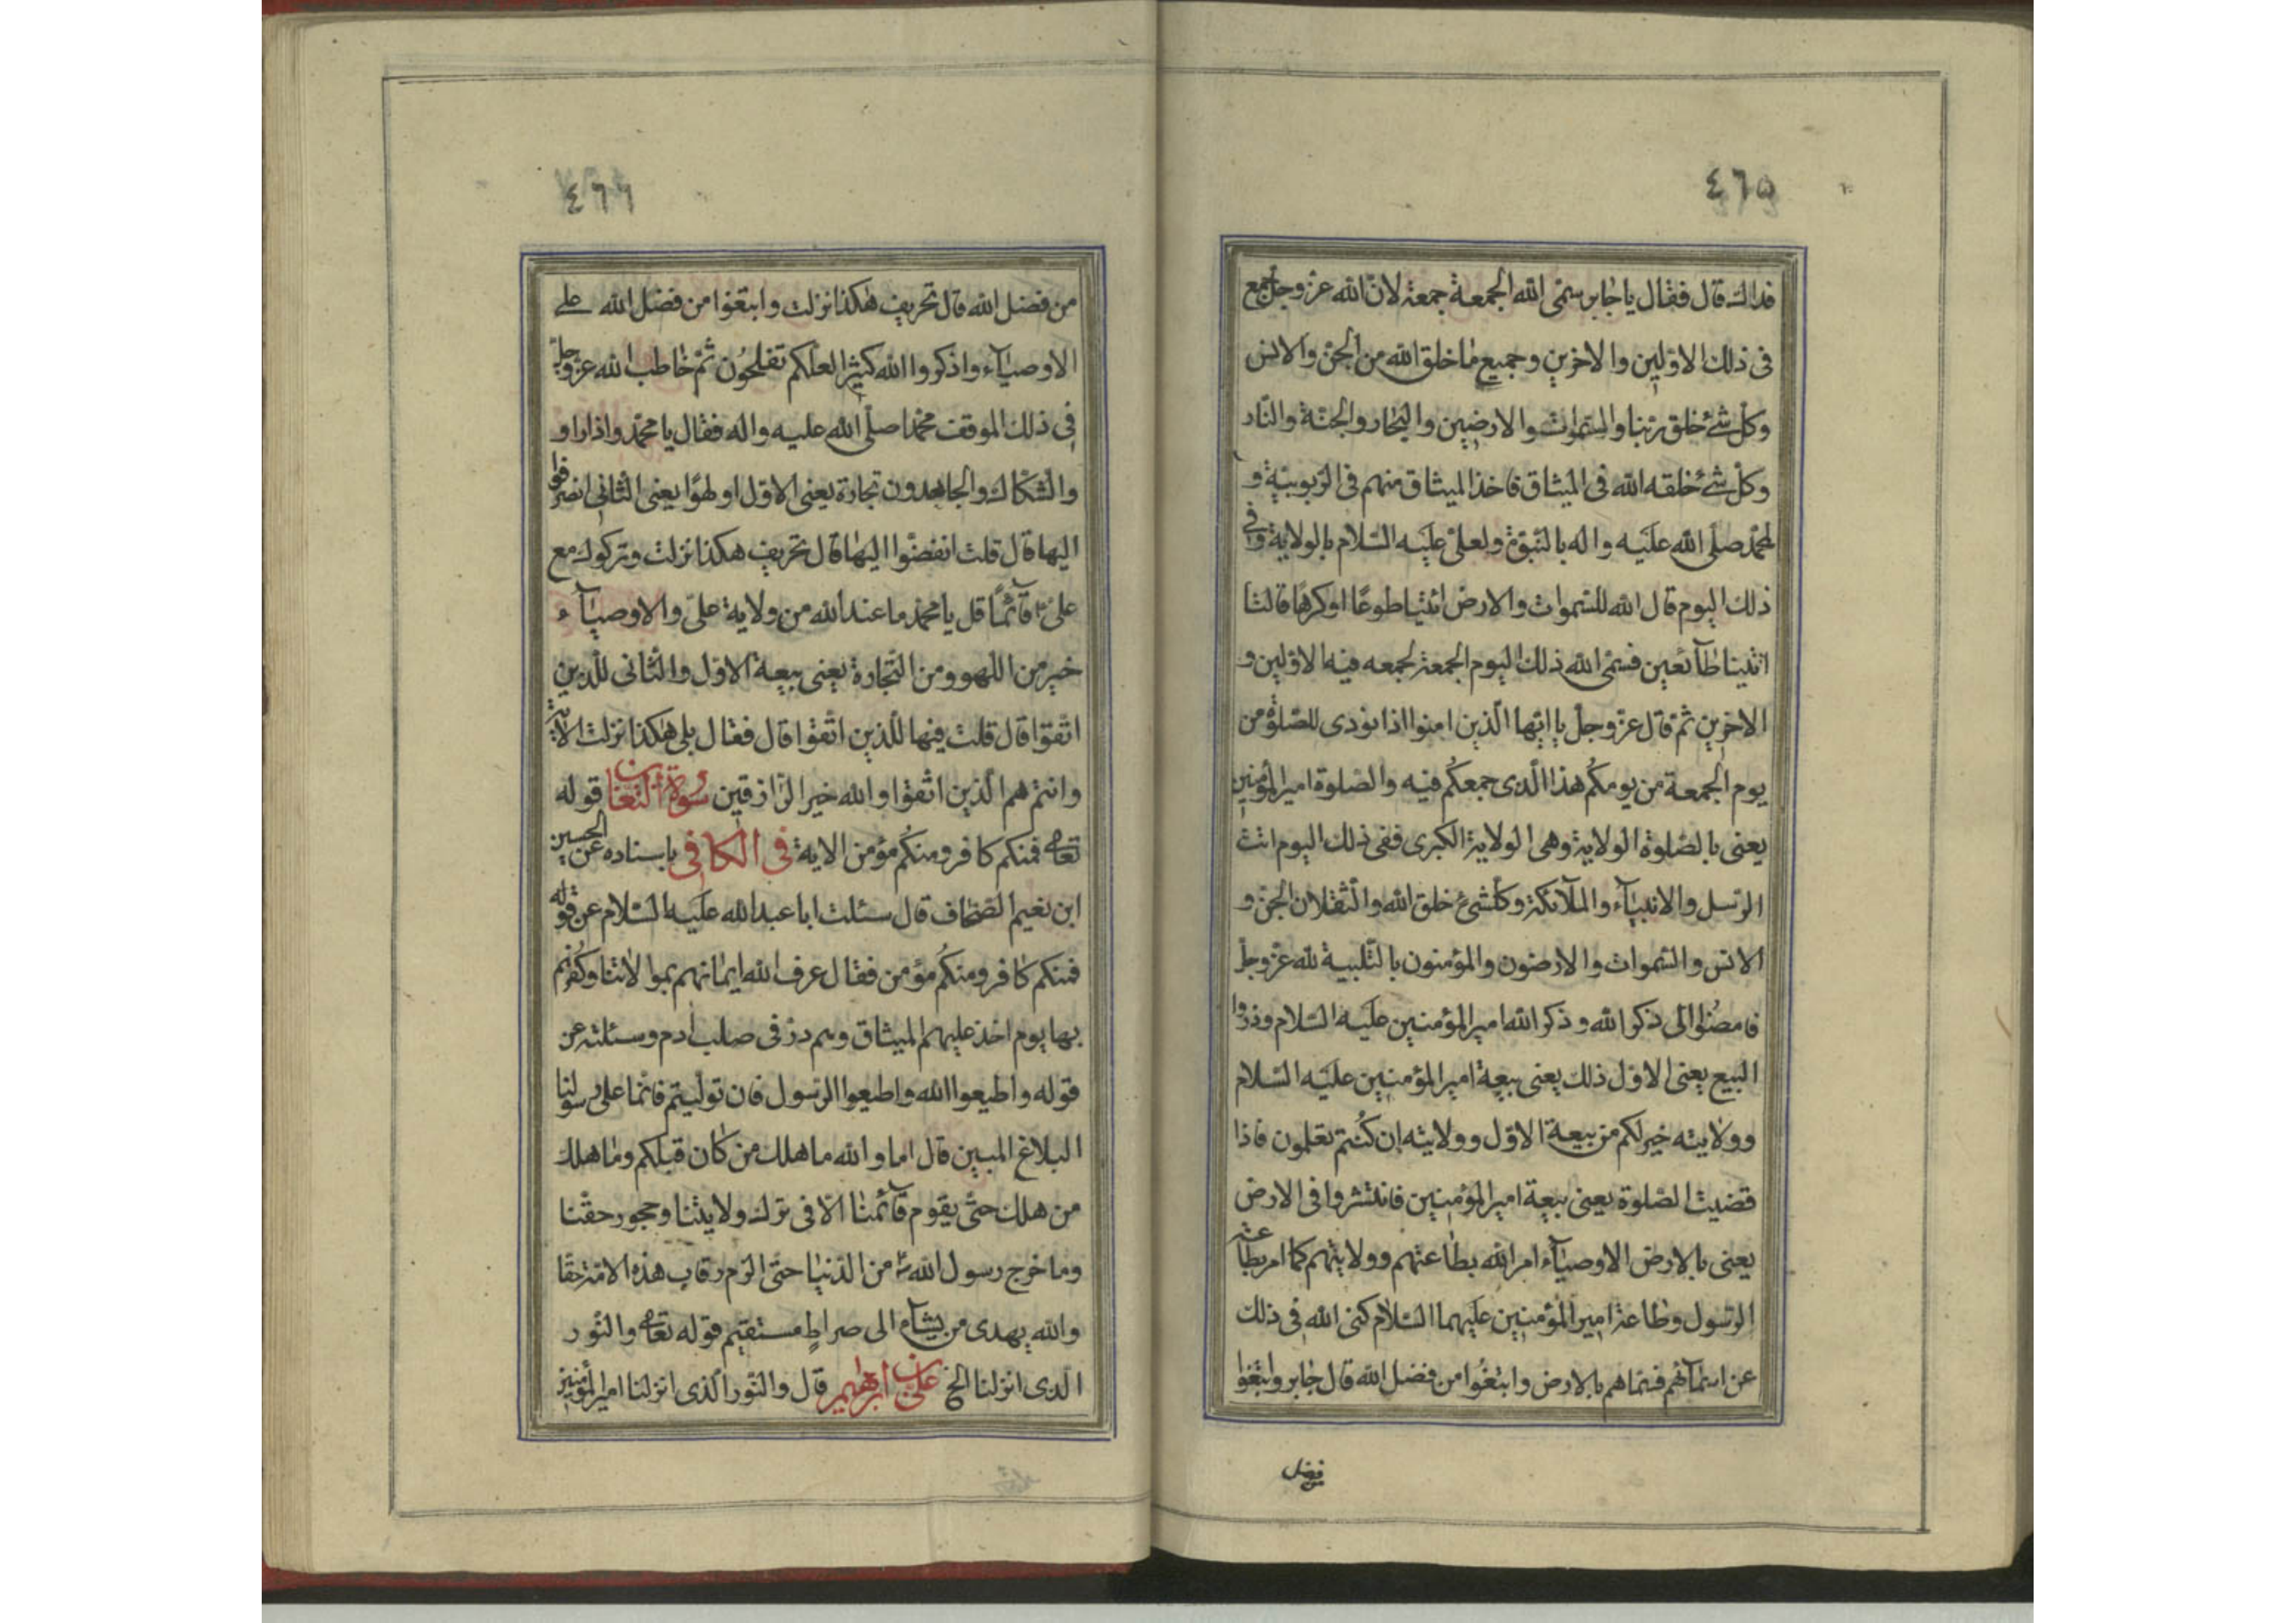 ٤٦٥
فداك قال فقال يا جابر سمّى الله الجمعة جمعة لانّ الله عزّ وجلّ جمع
فى ذلك الاوّلين والاخرين وجميع ما خلق الله من الجنّ والانس
وكلّ شئ خلق ربّنا والسّموات والارضين والبحار والجنّة والنّار
وكلّ شئ خلقه الله فى الميثاق فاخذ الميثاق منهم فى الرّبوبيّة و
لمحمّد صلّى الله عليه واله بالنّبوّة ولعلىّ عليه السّلام بالولاية وفى
ذلك اليوم قال الله للسّموات والارض ائتيا طوعًا او كرهًا قالتا
اتينا طآئعين فسمّى الله ذلك اليوم الجمعة لجمعه فيه الاوّلين و
الاخرين ثمّ قال عزّ وجلّ يا ايّها الّذين امنوا اذا نودى للصّلوة من
يوم الجمعة من يومكُم هذا الّذى جمعكُم فيه والصّلوة امير المؤمنين
يعنى بالصّلوة الولاية وهى الولاية الكبرى ففى ذلك اليوم اتت
الرّسل والانبيآء والملآئكة وكلّشئ خلق الله والثّقلان الجنّ و
الانس والسّموات والارضون والمؤمنون بالتّلبية لله عزّ وجلّ
فامضُوا الى ذكر الله وذكر الله امير المؤمنين عليه السّلام وذروا
البيع يعنى الاوّل ذلك يعنى بيعة امير المؤمنين عليه السّلام
وولايته خير لكم من بيعة الاوّل وولايته ان كُنتم تعلمون فاذا
قضيت الصّلوة يعنى بيعة امير المؤمنين فانتشروا فى الارض
يعنى بالارض الاوصيآء امر الله بطاعتهم وولايتهم كما امر بطاعة
الرّسول وطاعة امير المؤمنين عليهما السّلام كنى الله فى ذلك
عن اسمآئهم فسمّاهم بالارض وابتغُوا من فضل الله قال جابر وابتغوا
من فضل
٤٦٦
من فضل الله قال تحريف هكذا نزلت وابتغوا من فضل الله على
الاوصيآء واذكروا الله كثيرًا لعلّكم تفلحُون ثمّ خاطب الله عزّ وجلّ
فى ذلك الموقف محمّدا صلّى الله عليه واله فقال يا محمّد واذا راو
والشّكاك والجاحدون تجارة يعنى الاوّل او لهوًا يعنى الثّانى انصرفوا
اليها قال قلت انفضّوا اليها قال تحريف هكذا نزلت وتركوك مع
علىّ قآئمًا قل يا محمّد ما عند الله من ولاية علىّ والاوصيآء
خير من اللّهو ومن التّجارة يعنى بيعة الاوّل والثّانى للّذين
اتّقوا قال قلت فيها للّذين اتّقوا قال فقال بلى هكذا نزلت الاية
وانتم هم الّذين اتّقوا والله خير الرّازقين سورة التّغابن قوله
تعالى فمنكم كافر ومنكُم مؤمن الاية فى الكافى باسناده عن الحسين
ابن نعيم الصّحّاف قال سئلت ابا عبد الله عليه السّلام عن قوله
فمنكم كافر ومنكُم مؤمن فقال عرف الله ايمانهم بموالاتنا وكُفرهم
بها يوم اخذ عليهم الميثاق وهم ذرّ فى صلب ادم وسئلته عن
قوله واطيعوا الله واطيعوا الرّسول فان تولّيتم فانّما على رسولنا
البلاغ المبين قال اما والله ما هلك من كان قبلكم وما هلك
من هلك حتّى يقوم قآئمنا الّا فى ترك ولايتنا وجحود حقّنا
وما خرج رسول الله ص من الدّنيا حتّى الزم رقاب هذه الامّة حقّا
والله يهدى من يشآء الى صراط مستقيم قوله تعالى والنّور
الّذى انزلنا الخ علىّ بن ابرٰهيم قال والنّور الّذى انزلنا امير المؤمنين